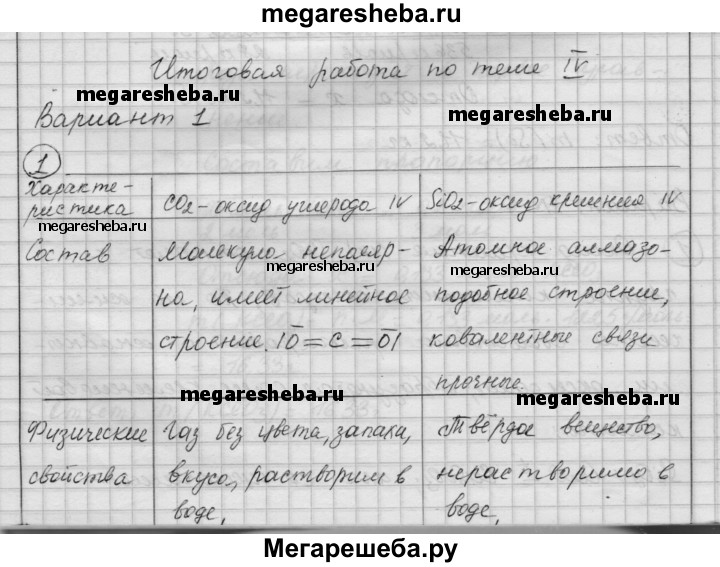 megaresheba.ru
Итоговая работа по теме IV
megaresheba.ru megaresheba.ru
Вариант 1
1
Характе- CO2-оксид углерода IV SiO2-оксид кремния IV
ристика
megaresheba.ru
Состав Молекула неполяр- Атомное алмазо-
megaresheba.ru
на, имеет линейное подобное строение,
строение. |O̅=C=O̅| ковалентные связи
прочные.
megaresheba.ru megaresheba.ru
Физические Газ без цвета, запаха, Твёрдое вещество,
свойства вкуса, растворим в нерастворимо в
воде, воде,
Мегарешеба.ру